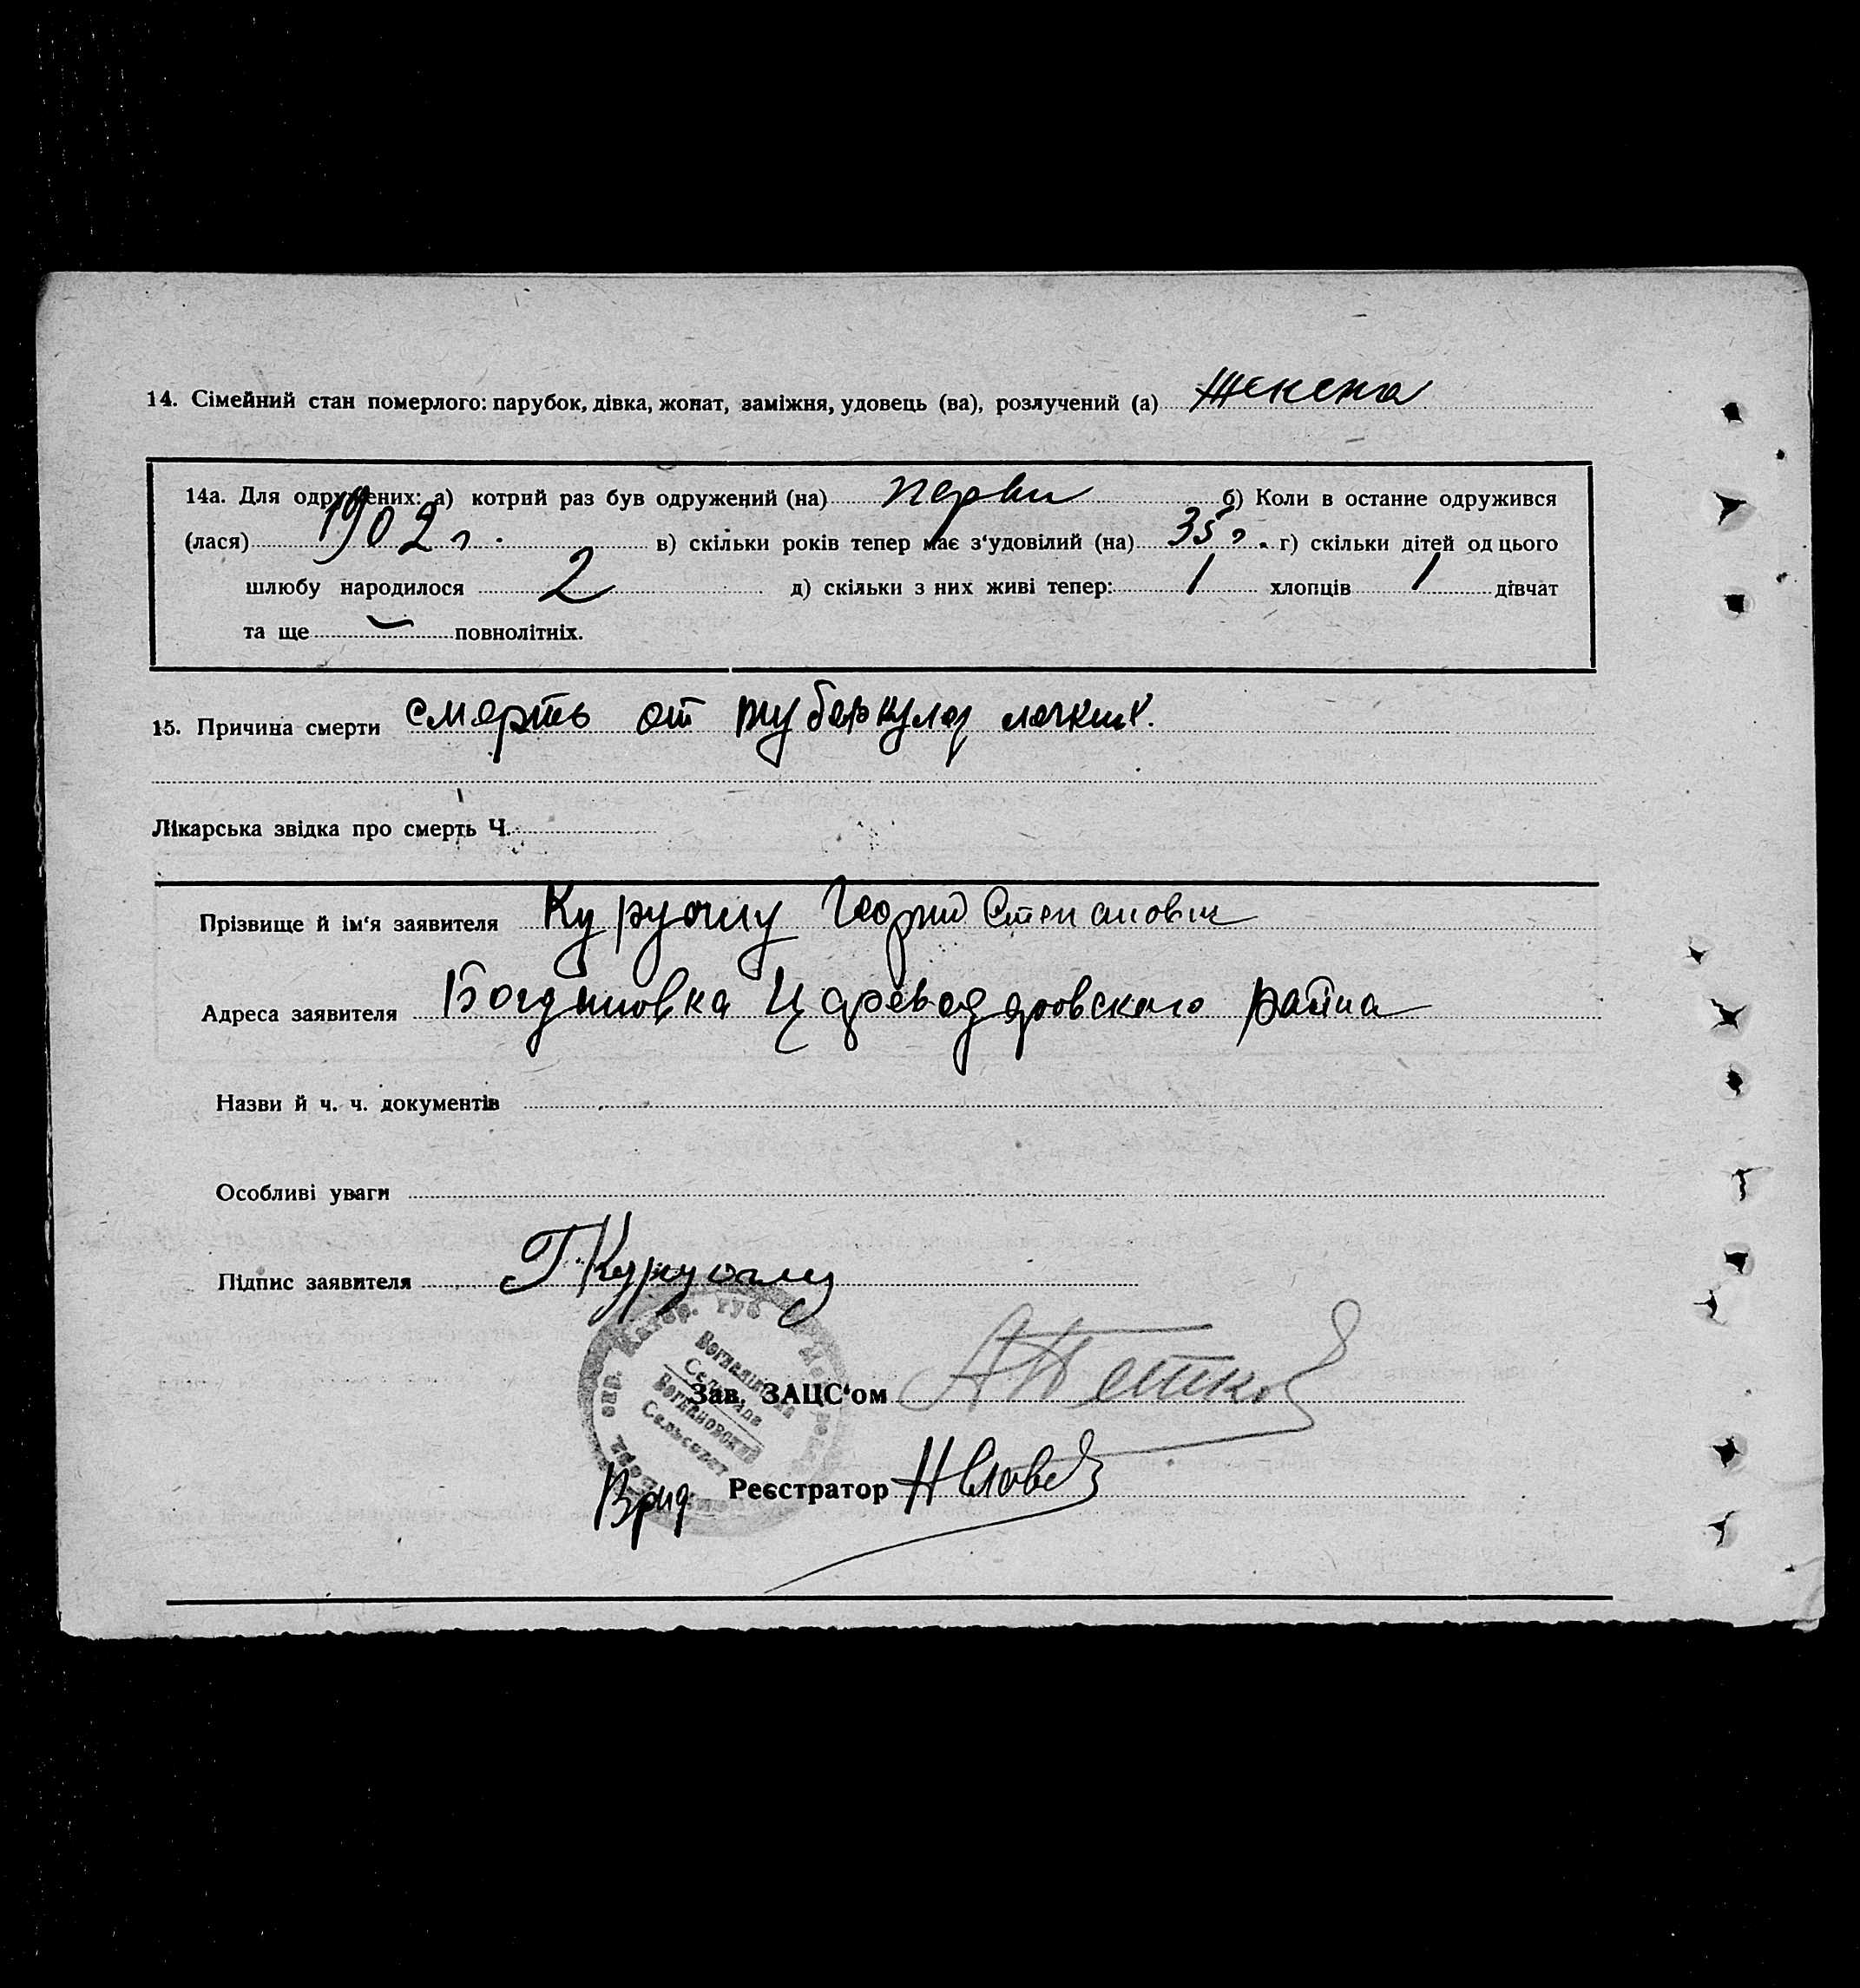 14. Сімейний стан померлого: парубок, дівка, жонат, заміжня, удовець (ва), розлучений (а) Женена
14а. Для одружених: а) котрий раз був одружений (на) перви б) Коли в останне одружився
(лася) 1902 г. в) скільки років тепер має з'удовілий (на) 35 г. г) скільки дітей од цього
шлюбу народилося 2 д) скільки з них живі тепер: 1 хлопців 1 дівчат
та ще — повнолітніх.
15. Причина смерти смерть от туберкулез легких.
Лікарська звідка про смерть Ч.
Прізвище й ім'я заявителя Куруоглу Георгий Степанович
Адреса заявителя Богдановка Цареводаровского района
Назви й ч. ч. документів
Особливі уваги
Підпис заявителя Г Куруоглу
Богданівська
Сельрада
Богдановский
Сельсовет
Зав. ЗАЦС'ом А Петков
Врид Реєстратор